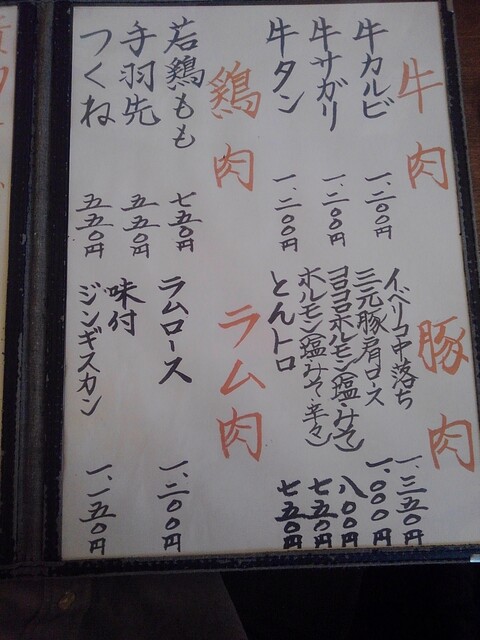 牛肉
牛カルビ 一、二〇〇円
牛サガリ 一、二〇〇円
牛タン 一、二〇〇円
鶏肉
若鶏もも 七五〇円
手羽先 五五〇円
つくね 五五〇円
豚肉
イベリコ中落ち 一、三五〇円
三元豚肩ロース 一、〇〇〇円
コロコロホルモン(塩・みそ) 八〇〇円
ホルモン(塩・みそ・辛々) 七五〇円
とんトロ 七五〇円
ラム肉
ラムロース 一、二〇〇円
味付
ジンギスカン 一、一五〇円